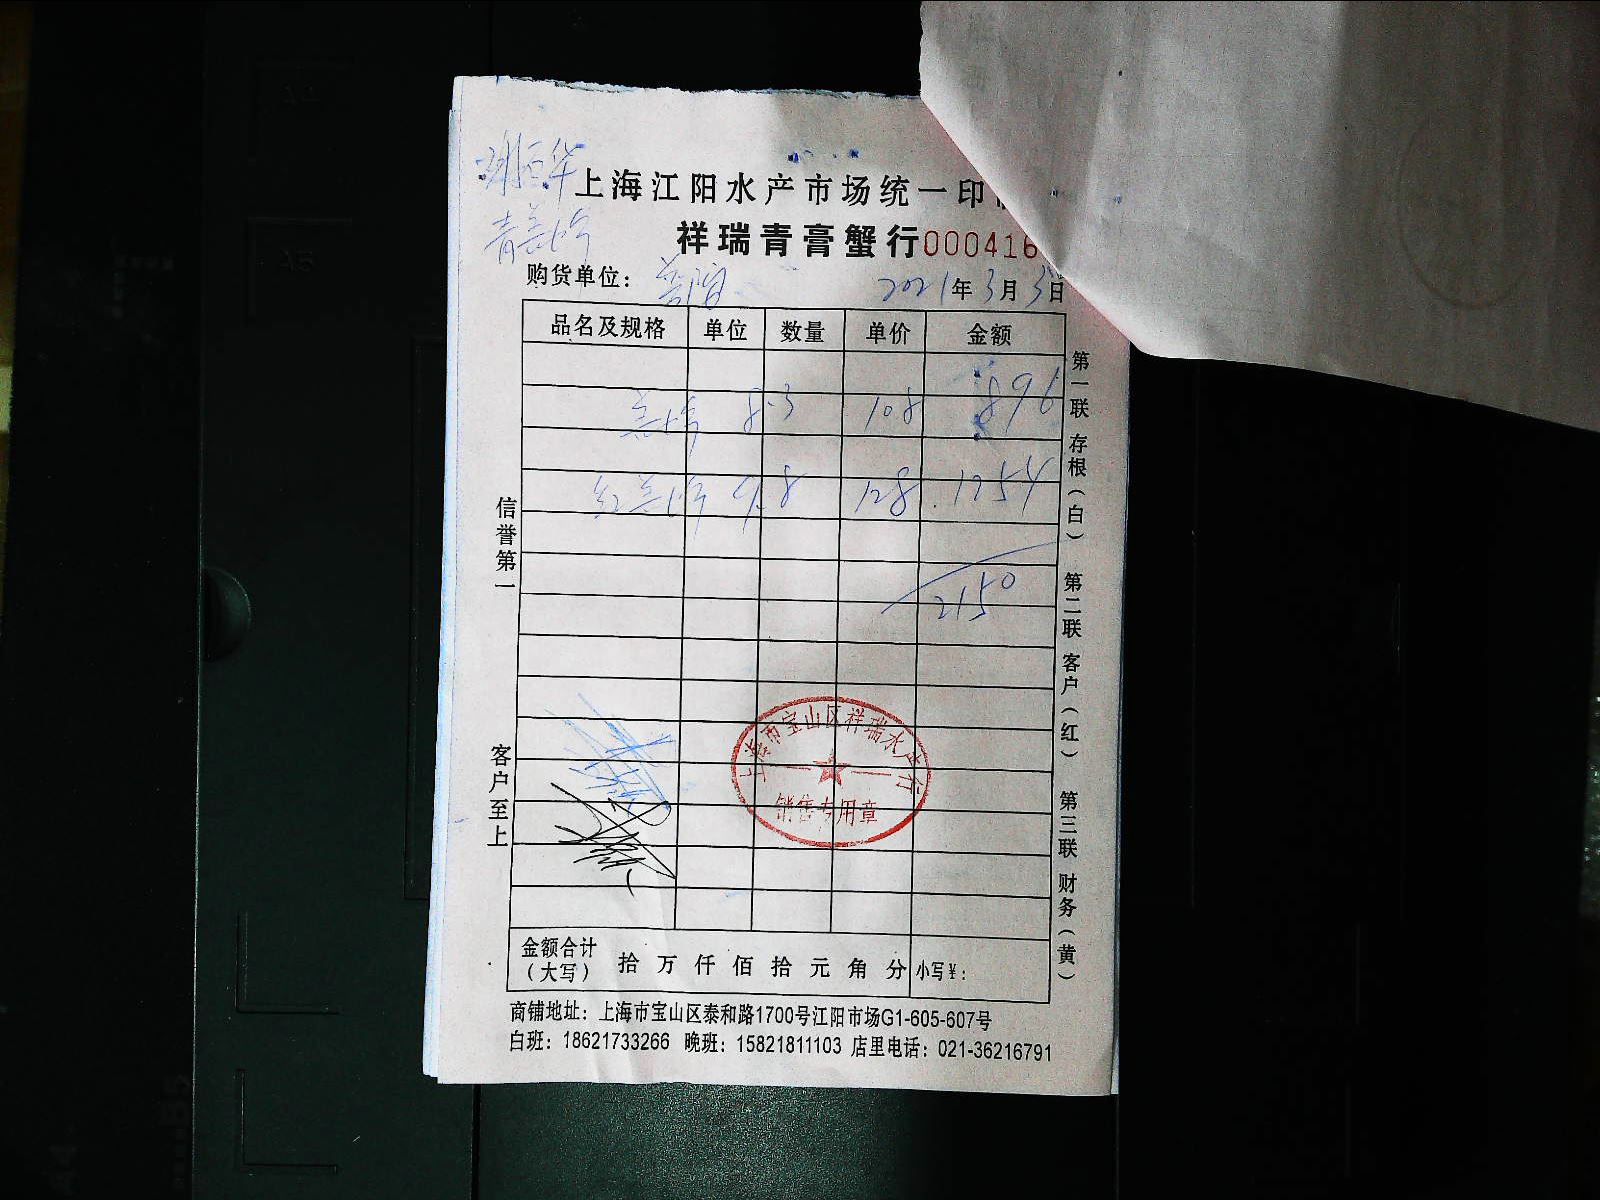 上海江阳水产市场统一印
祥瑞青膏蟹行 000416
购货单位： 2021年3月3日
品名及规格 单位 数量 单价 金额
8.3 108 896
红膏 9.8 128 1254
2150
信誉第一
客户至上
第一联 存根（白） 第二联 客户（红） 第三联 财务（黄）
上海市宝山区祥瑞水产行
销售专用章
金额合计（大写） 拾 万 仟 佰 拾 元 角 分 小写¥：
商铺地址：上海市宝山区泰和路1700号江阳市场G1-605-607号
白班：18621733266 晚班：15821811103 店里电话：021-36216791